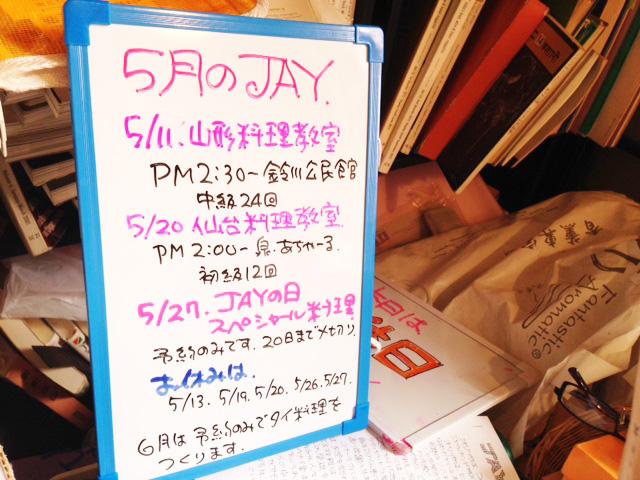 5月のJAY.
5/11. 山形料理教室
PM2:30〜鈴川公民館
中級24回
5/20 仙台料理教室
PM2:00〜泉.あちゃーる.
初級12回
5/27. JAYの日
スペシャル料理
予約のみです. 20日まで〆切り.
お休みは.
5/13. 5/19. 5/20. 5/26. 5/27.
6月は予約のみでタイ料理を
つくります.
今日は
休日
Fantastic®
Aromatic